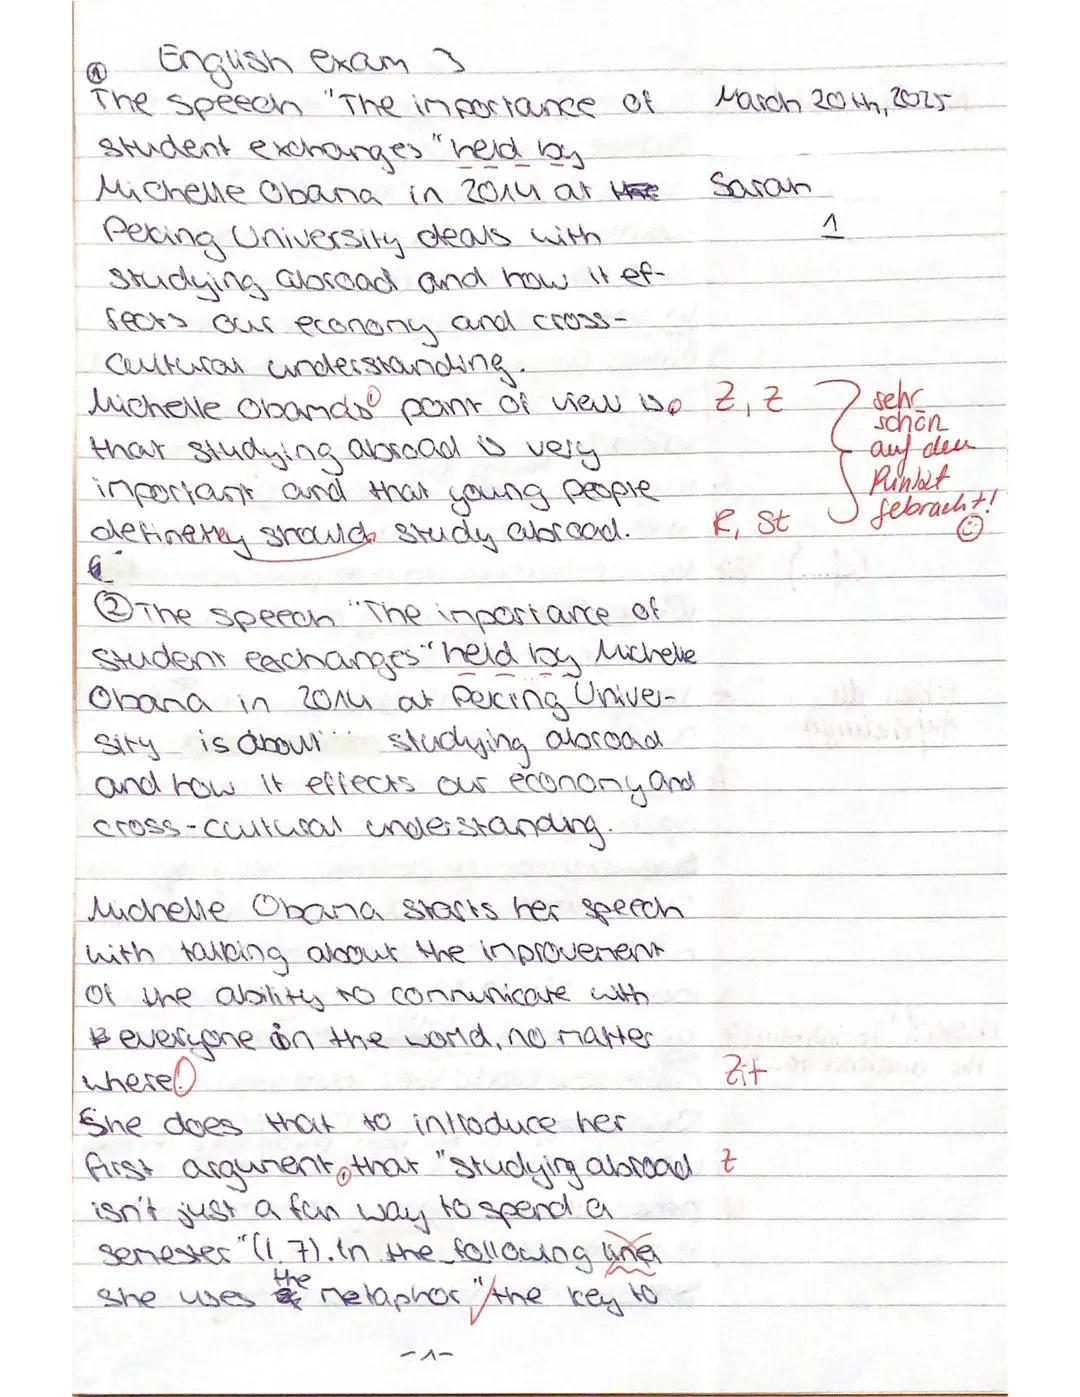 English exam 3
① The speech "The importance of March 20th, 2025
student exchanges" held by
Michelle Obama in 2014 at the Sarah
Peking University deals with 1
studying abroad and how it ef-
fects our economy and cross-
cultural understanding.
Michelle Obama's point of view is Z, Z sehr
schön
that studying abroad is very auf den
important and that young people Punkt
definetly should study abroad. R, St gebracht!
② The speech "The importance of
student exchanges" held by Michelle
Obama in 2014 at Peking Univer-
sity is about studying abroad
and how it effects our economy and
cross-cultural understanding.
Michelle Obama starts her speech
with talking about the improvement
of the ability to communicate with
everyone in the world, no matter
where. Zit
She does that to introduce her
first argument, that "studying abroad Z
isn't just a fun way to spend a
semester" (l. 7). In the following line
she uses the metaphor "the key to
-1-